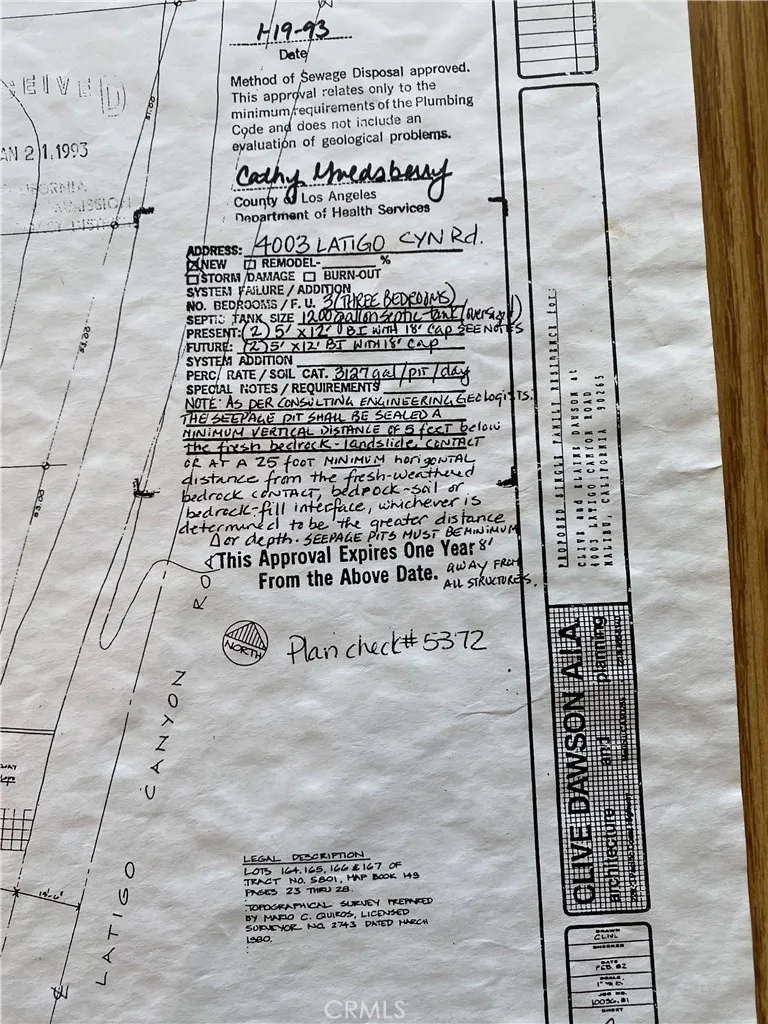 1-19-93
Date
Method of Sewage Disposal approved.
This approval relates only to the
minimum requirements of the Plumbing
Code and does not include an
evaluation of geological problems.
Cathy
County of Los Angeles
Department of Health Services
CEIVED
AN 21.1993
ADDRESS: 4003 LATIGO CYN Rd.
NEW REMODEL- %
STORM DAMAGE BURN-OUT
SYSTEM FAILURE / ADDITION
NO. BEDROOMS / F. U. 3 (THREE BEDROOMS)
SEPTIC TANK SIZE 1200 gallon septic tank (oversized)
PRESENT: (2) 5' X 12' BI WITH 18' Cap SEE NOTES
FUTURE: (2) 5' X 12' BI WITH 18' Cap
SYSTEM ADDITION
PERC/ RATE / SOIL CAT. 3127 gal/pit/day
SPECIAL NOTES / REQUIREMENTS
NOTE: AS PER CONSULTING ENGINEERING GEOLOGISTS.
THE SEEPAGE PIT SHALL BE SEALED A
MINIMUM VERTICAL DISTANCE OF 5 feet below
the fresh bedrock-landslide, CONTACT
OR AT A 25 FOOT MINIMUM horizontal
distance from the fresh-weathered
bedrock CONTACT, bedrock-soil or
bedrock-fill interface, whichever is
determined to be the greater distance
or depth. SEEPAGE PITS MUST BE MINIMUM
8'
AWAY FROM
ALL STRUCTURES.
This Approval Expires One Year
From the Above Date.
NORTH
Plan check # 5372
LATIGO CANYON RO
LEGAL DESCRIPTION
LOTS 164, 165, 166 & 167 OF
TRACT NO. 5801, MAP BOOK 149
PAGES 23 THRU 28.
TOPOGRAPHICAL SURVEY PREPARED
BY MARIO C. QUIROS, LICENSED
SURVEYOR NO. 2743 DATED MARCH
1980.
PROPOSED SINGLE FAMILY RESIDENCE for:
CLIVE and ELAINE DAWSON at
4003 LATIGO CANYON ROAD
MALIBU, CALIFORNIA 90265
CLIVE DAWSON AIA
architecture and planning
DRAWN
CLIVE
CHECKED
DATE
FEB. 82
SCALE
JOB NO.
SHEET
CRMLS